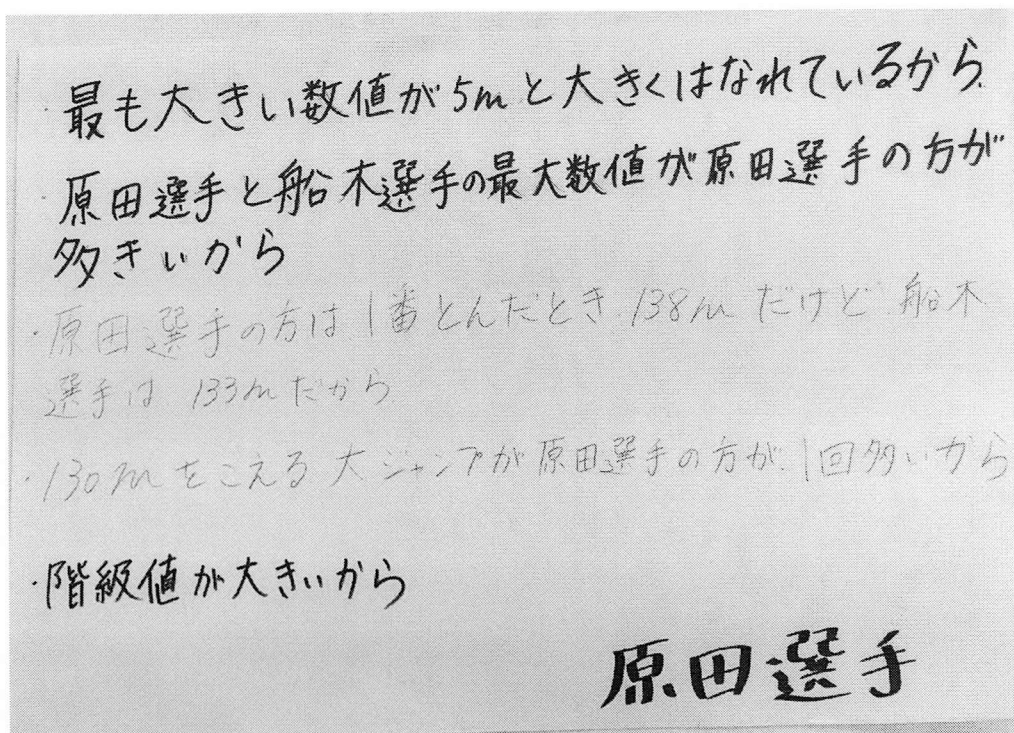 ・最も大きい数値が5mと大きくはなれているから
・原田選手と船木選手の最大数値が原田選手の方が
多きいから
・原田選手の方は1番とんだとき138mだけど船木
選手は133mだから
・130mをこえる大ジャンプが原田選手の方が1回多いから
・階級値が大きいから
原田選手